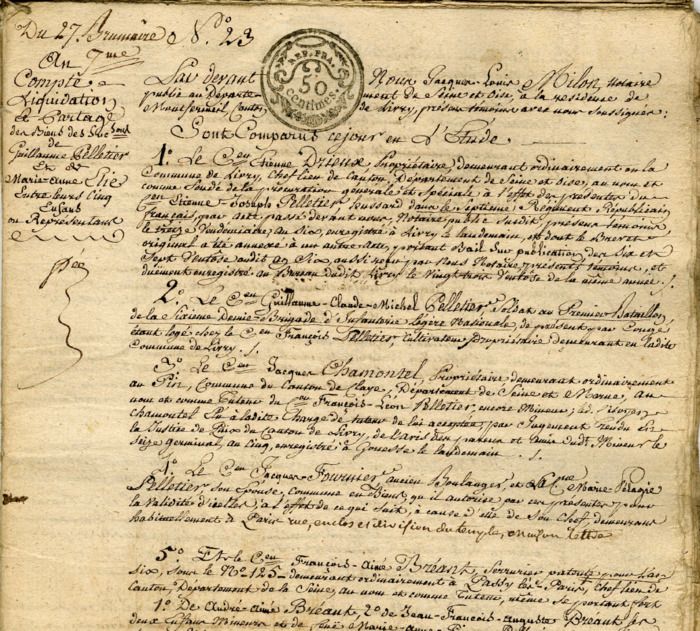 Du 27. Brumaire N.o 23
An 7me
Compte
Liquidation
et Partage
des Biens des Succ.ons
de
Guillaume Pelletier
Et de
Marie-Anne Elie
Entre leurs Cinq
Enfans
ou Représentans
REP. FRA.
50
centimes.
Par devant Nous Jacques Louis Milon, Notaire
public au Départe- ment de Seine et Oise, à la résidence de
Montfermeil Canton de Livry, présens témoins avec nous soussignés:
Sont Comparus cejour en L'Etude
1.o Le C.en Etienne Drieux Propriétaire, demeurant ordinairement en la
Commune de Livry, Chef lien de Canton, Département de Seine et Oise, au nom et
comme fondé de la procuration générale et spéciale à l'effet des présentes du
C.en Etienne-Joseph Pelletier hussard dans le Septieme Régiment Républicain
français, par acte passé devant nous, Notaire public susdit présens témoins
le treize Vendemiaire, an Six, enregistré à Livry le lendemain, et dont le Brevet
original a été annexé à un autre acte, portant Bail sur publication des six et
Sept Ventose audit an Six, aussi reçu par Nous Notaire, présens témoins, et
duement enregistré au Bureau dudit Livry le Vingt trois Ventose de la même année ./.
2.o Le C.en Guillaume-Claude-Michel Pelletier Soldat au Premier Bataillon
de la Sixieme Demie-Brigade d'Infanterie Légère Nationale, de présent par Congé
étant logé chez le C.en François Pelletier Cultivateur Propriétaire demeurant en ladite
Commune de Livry ./.
3.o Le C.en Jacques Chamontel, Propriétaire demeurant ordinairement
au Pin, Commune du Canton de Claye, Département de Seine et Marne, au
nom et comme tuteur du C.en François-Léon Pelletier, encore Mineur;
Chamontel à ladite Charge de tuteur de lui acceptée, par Jugement rendu en
la Justice de Paix du Canton de Livry, de l'avis des parens et amis dudt. Mineur le
seize germinal, an Cinq, enregistré à Gonesse le lendemain ./.
4.o Le C.en Jacques Fournier ancien Boulanger et La C.enne Marie Pélagie
Pelletier Son épouse, commune en Biens, qu'il autorise par ces présentes, pour
la validité d'icelles, à l'effet de ce qui suit, à cause d'elle de Son Chef, demeurans
habituellement à Paris rue, enclos et division du temple,
5.o Et le C.en François-Aimé Bréant, Serrurier patenté pour l'an
six, sous le N.o 125 demeurant ordinairement à Passy les Paris, Chef lien de
Canton, Département de la Seine, au nom et comme Tuteur, même se portant fort
1.o De André-Aimé Bréant, 2.o de Jean-François-Auguste Bréant ses
deux Enfans Mineurs et de feue Marie-Anne